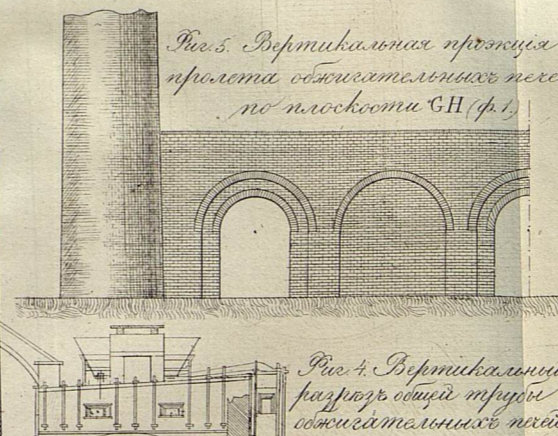 Фиг. 5. Вертикальная проэкція
пролета обжигательныхъ пече
по плоскости GH (ф. 1.)
Фиг. 4. Вертикальный
разрѣзъ общей трубы
обжигательныхъ печей